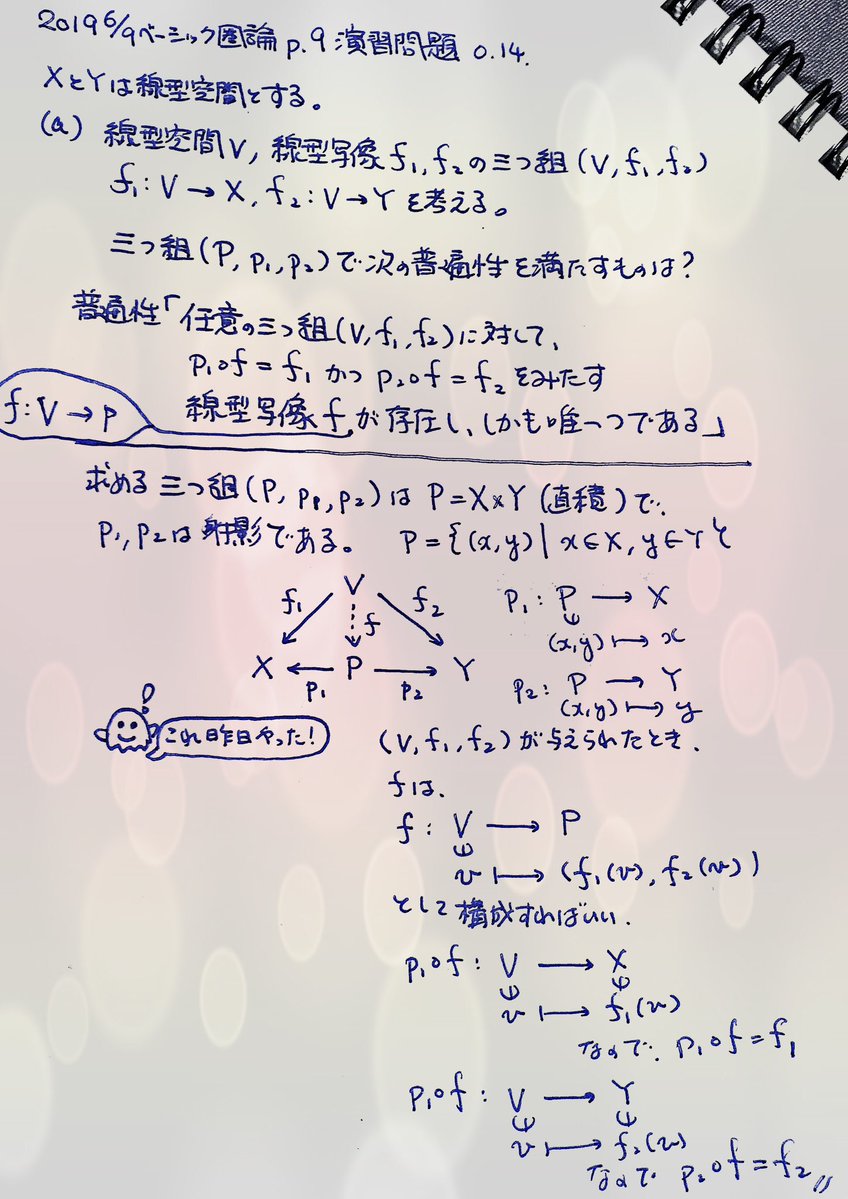 2019 6/9 ベーシック圏論 p.9 演習問題 0.14.
XとYは線型空間とする。
(a) 線型空間V, 線型写像 f₁, f₂の三つ組(V, f₁, f₂)
f₁: V → X, f₂: V → Y を考える。
三つ組(P, p₁, p₂)で次の普遍性を満たすものは?
普遍性「任意の三つ組(V, f₁, f₂)に対して、
p₁∘f = f₁ かつ p₂∘f = f₂ をみたす
f: V → P
線型写像 f が存在し、しかも唯一つである」
求める三つ組(P, p₁, p₂)は P = X×Y (直積)で、
p₁, p₂は射影である。 P = {(x, y) | x∈X, y∈Y}
V
f₁ f f₂
X ← P → Y
p₁ p₂
p₁: P → X
(x, y) ↦ x
p₂: P → Y
(x, y) ↦ y
!
これ昨日やった!
(V, f₁, f₂)が与えられたとき、
fは、
f: V → P
v ↦ (f₁(v), f₂(v))
として構成すればいい.
p₁∘f: V → X
v ↦ f₁(v)
なので、 p₁∘f = f₁
p₁∘f: V → Y
v ↦ f₂(v)
なので p₂∘f = f₂ //